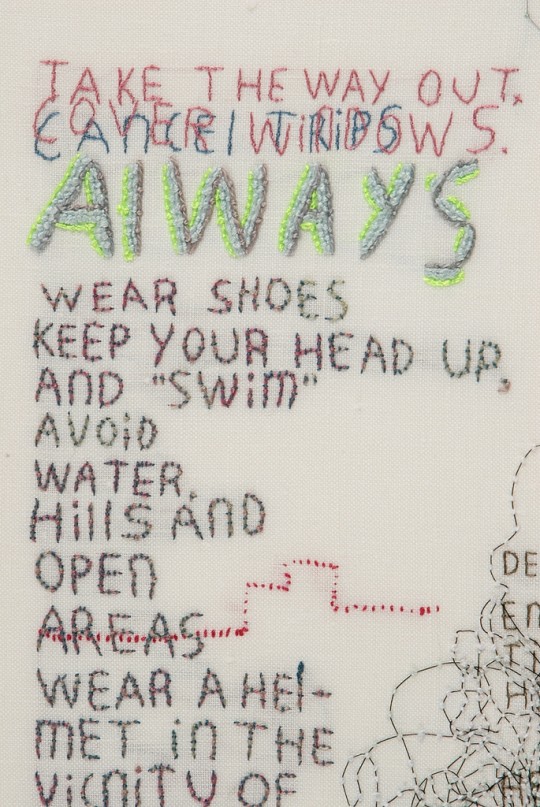 TAKE THE WAY OUT.
COVER WINDOWS.
CANCEl TRiPS
AlWAYS
WEAR SHOES
KEEP YOUR HEAD UP,
AND "SWiM"
AVOiD
WATER,
HillS AND
OPEN
AREAS
WEAR A HEl-
MET iN THE
ViCNiTY OF
DE
EN